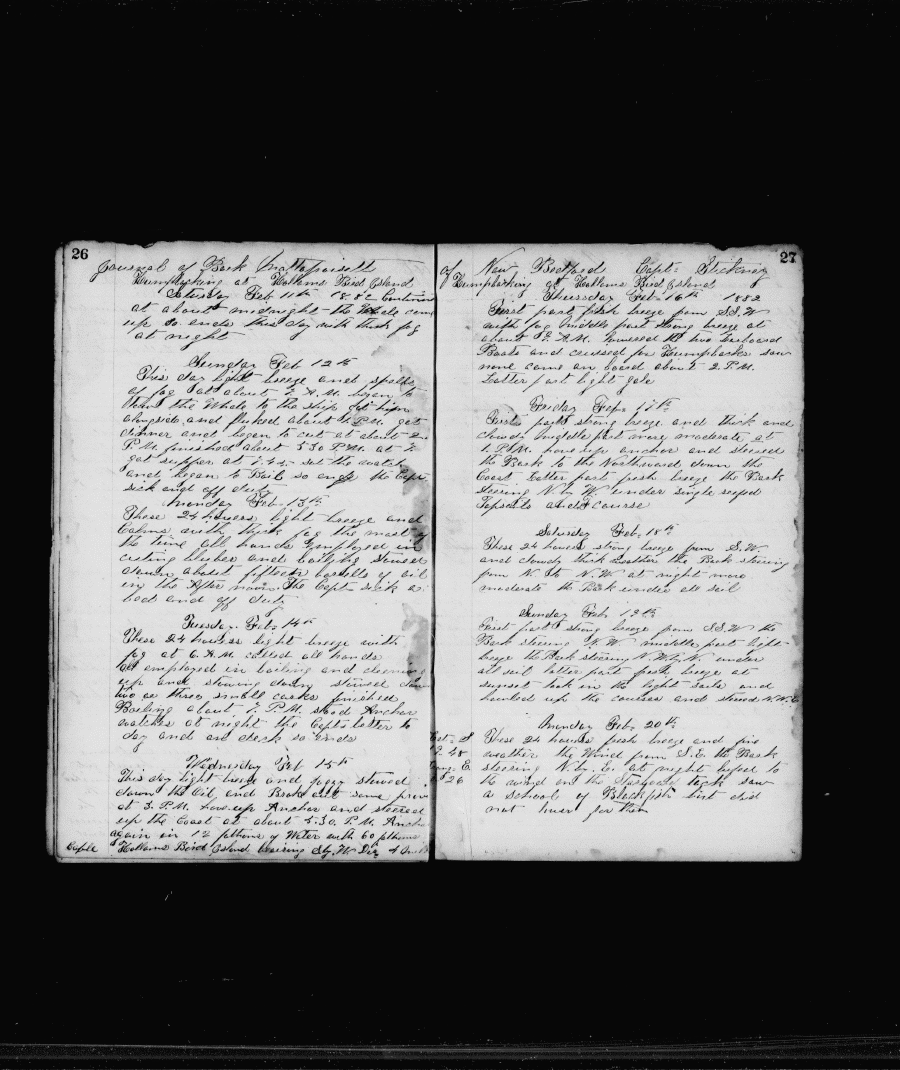 26
Journal of Bark Mattapoisett
Humpbacking at Hollams Bird Island
Saturday Feb 11th 1882 Continued
at about midnight the Whale came
up so ends this day with thick fog
at night
Sunday Feb 12th
This day light breeze and spells
of fog at about 7. A.M. began to
the Whale to the ship got him
alongside and fluked about P.M. got
dinner and began to cut at about 2
P.M. finished about 5.30 P.M. at
got supper at set the watch
and began to Boil so ends the Capt
sick and off duty
Monday Feb. 13th
These 24 hours light breeze and
Calms with thick fog the most of
the time all hands employed in
cutting bluber and boiling stowed
down about fifteen barrells of oil
in the After noon The Capt sick a
bed and off duty
Tuesday Feb. 14th
These 24 hours light breeze with
fog at 6. A.M. called all hands
employed in boiling and cleaning
up and stowing down stowed down
two or three small casks finished
Boiling about 7. P.M. stood Anchor
watches at night the Capt better to
day and on deck so Ends
Wednesday Feb 15th
This day light breeze and foggy stowed
down the Oil and Broke out some
at 3. P.M. hove up Anchor and steered
up the Coast at about 5.30. P.M.
again in 12 fathoms of Water with 60 fathoms
Cable Hollams Bird Island bearing S by W
27
of New Bedford Capt:
Humpbacking at Hollams Bird Island
Thursday Feb. 16th 1882
First part fresh breeze from S.S.W
with fog middle part strong breeze at
about A.M. lowered the two Larboard
Boats and cruised for Humpbacks saw
none came on board about 2 P.M.
Latter part light gale
Friday Feb. 17th
First part strong breeze and thick and
cloudy middle part more moderate at
1. P.M. hove up anchor and steered
the Bark to the Northward down the
Coast Latter part fresh breeze the Bark
steering N. by W. under single reefed
Topsails and course
Saturday Feb. 18th
These 24 hours strong breeze from S.W.
and cloudy thick weather the Bark steering
from N. to N.W. at night more
moderate the Bark under all sail
Sunday Feb. 19th
First part strong breeze from S.S.W the
Bark steering N.W. middle part light
breeze the Bark steering N.W. by N. under
all sail latter part fresh breeze at
sunset took in the light sails and
hauled up the courses and steered N.N.E
Monday Feb. 20th
These 24 hours fresh breeze and fine
weather the Wind from S.E. the Bark
steering N. by E. at night luffed to
the wind on the Starboard tack saw
a school of Blackfish but did
not lower for them
Lat. S
48
Long. E.
26